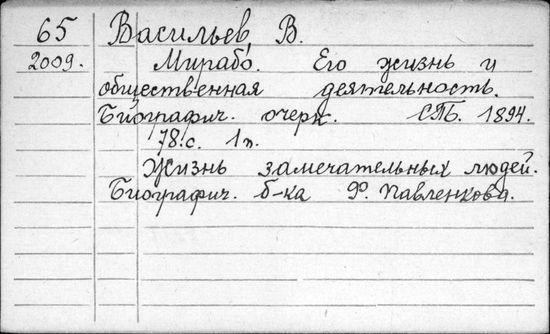 65 Васильев В.
2009. Мирабо. Его жизнь и
общественная деятельность.
Биографич. очерк. СПБ. 1894.
78.с. 1п.
Жизнь замечательных людей.
Биографич. б-ка Ф. Павленкова.